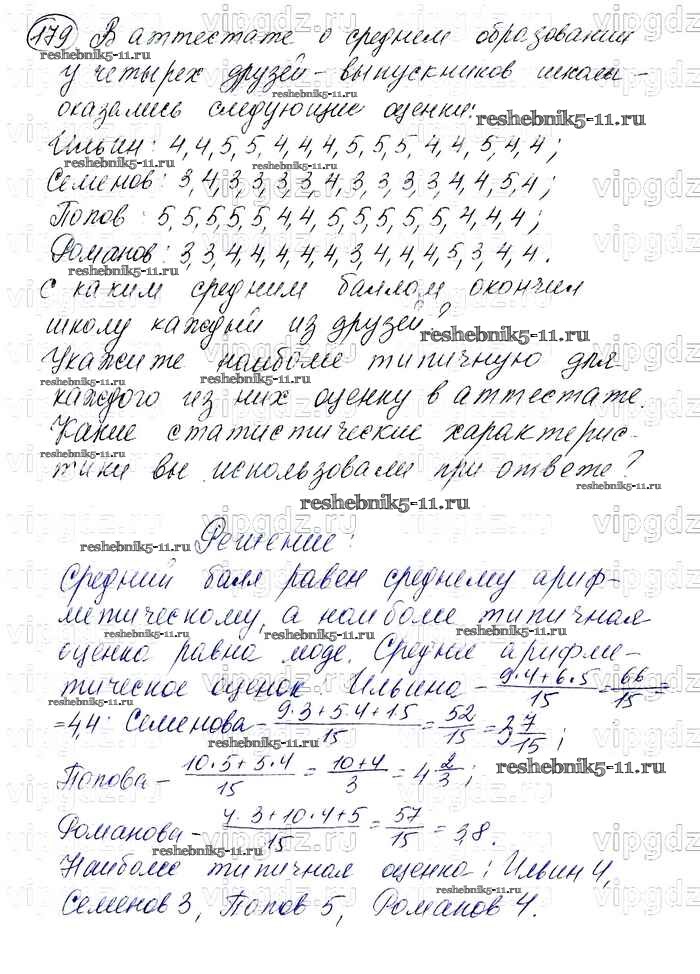 179 В аттестате о среднем образовании
у четырех друзей – выпускников школы –
оказались следующие оценки:
Ильин: 4,4,5,5,4,4,4,5,5,5,4,4,5,4,4;
Семенов: 3,4,3,3,3,3,4,3,3,3,3,4,4,5,4;
Попов: 5,5,5,5,5,4,4,5,5,5,5,5,4,4,4;
Романов: 3,3,4,4,4,4,4,3,4,4,4,5,3,4,4.
С каким средним баллом окончил
школу каждый из друзей?
Укажите наиболее типичную для
каждого из них оценку в аттестате.
Какие статистические характерис-
тики вы использовали при ответе?
reshebnik5-11.ru
Решение:
Средний балл равен среднему ариф-
метическому, а наиболее типичная
оценка равна моде. Среднее арифме-
тическое оценок Ильина – (9·4+6·5)/15 = 66/15 =
= 4,4. Семенова – (9·3+5·4+1·5)/15 = 52/15 = 3 7/15;
Попова – (10·5+5·4)/15 = (10+4)/3 = 4 2/3;
Романова – (4·3+10·4+5)/15 = 57/15 = 3,8.
Наиболее типичная оценка: Ильин 4,
Семенов 3, Попов 5, Романов 4.